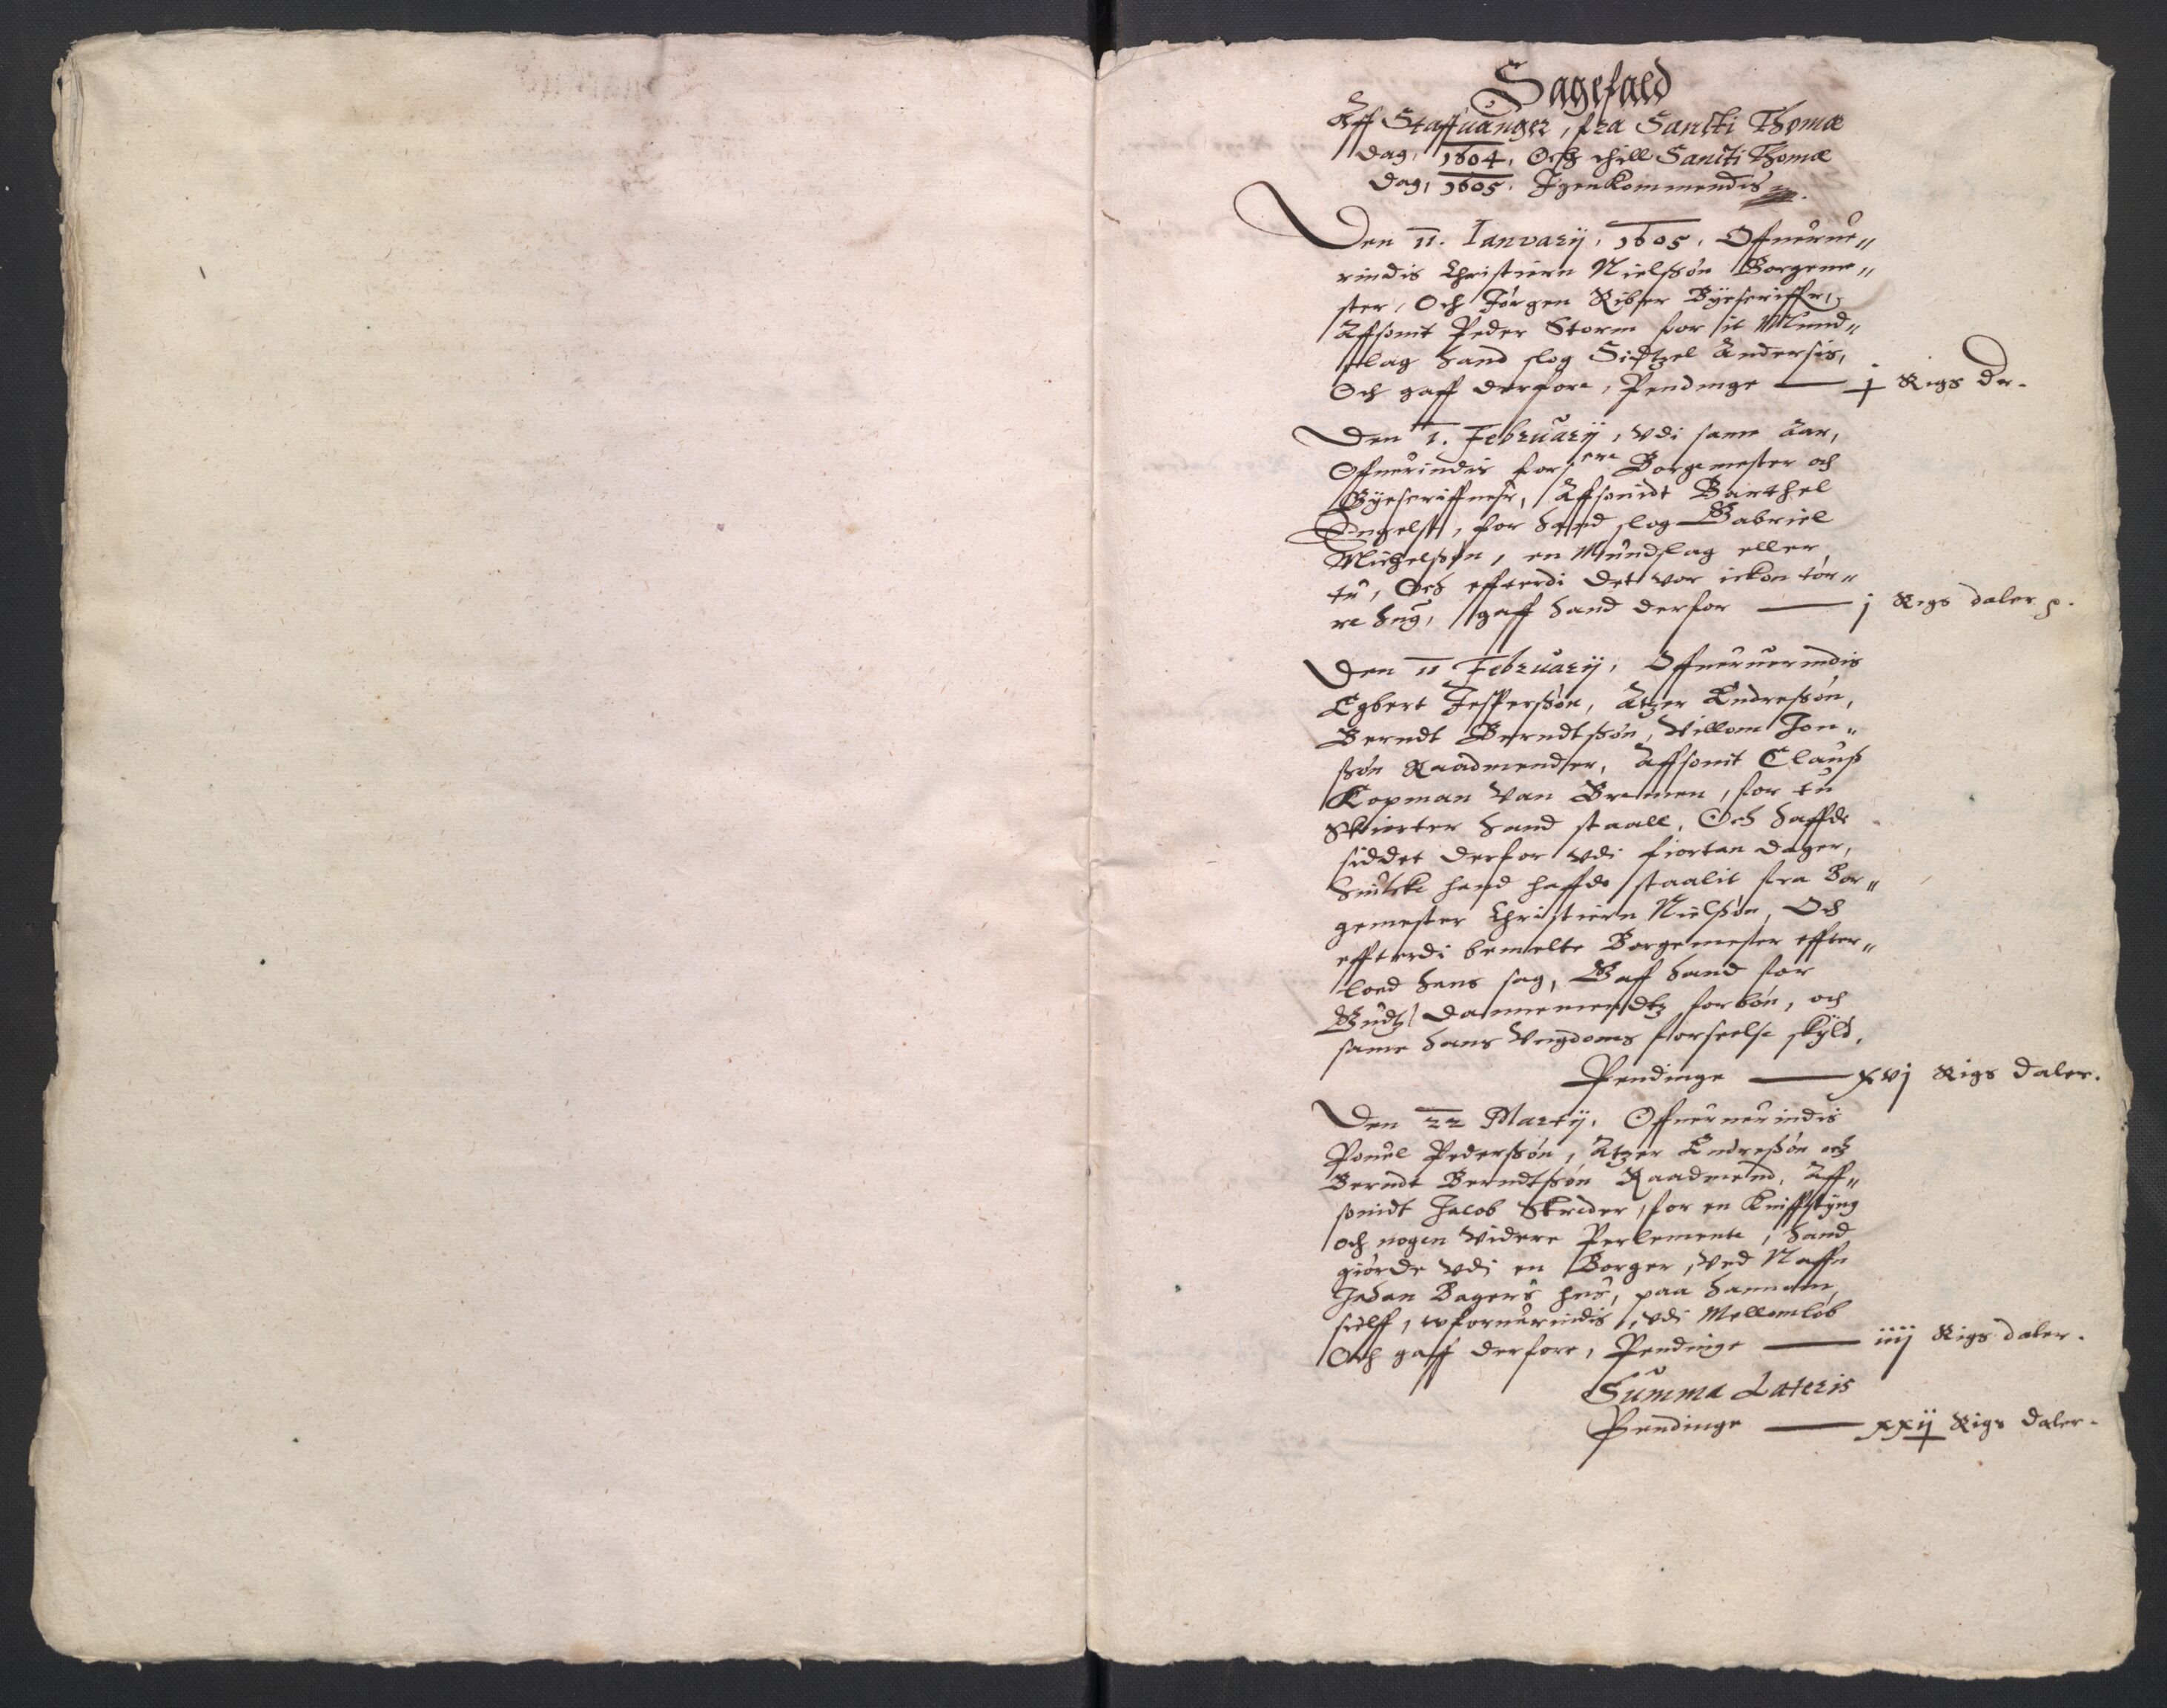 Sagefald
Aff Staffuanger, fra Sancti Thomæ
dag, 1604, Och thill Sancti Thomæ
dag, 1605. Igenkommendis
Den 11. Ianuarij, 1605, Offueruе„
rindis Christiern Nielssøn Borgeme„
ster, Och Jørgen Riber Byescriffr,
Affsonit Peder Storm for it Mund„
slag hand slog Sidtzel Andersis,
Och gaff derfore, Pendinge — j Rigs dr.
Den 1. Februarij, vdi same Aar,
Offuerindis forscrne Borgemester och
Byescriffuer, Affsonidt Barthel
Engelst, for hand slog Gabriel
Michelssøn, en Mundslag eller
tu, Och effterdi det vor ickon tør„
re hug, gaff hand derfor — j Rigs daler.
Den 11 Februarij, Offueruerindis
Egbert Jesperssøn, Atzer Endressøn,
Berndt Berndtssøn, Villom Jon„
ssøn Raadmender, Affsonit Clauss
Kopman van Bremen, for tu
Skiorter hand staall, Och haffde
siddet derfor vdi fiortan dager,
huilcke hand haffde staalit fra Bor„
gemester Christiern Nielssøn, Och
effterdi bemelte Borgemester effter„
loed hans sag, Gaff hand for
Gudz, dannemendtz forbøn, och
same hans Vngdoms forseelse skyld,
Pendinge — xvj Rigs daler.
Den 22 Martij, Offueruerindis
Pouel Pederssøn, Atzer Endressøn och
Berndt Berndtssøn Raadmend, Aff„
sonidt Jacob Skreder, for en Kniffstyng
och nogen videre Perlemente, hand
giorde vdi en Borger, ved Naffn
Johan Bagers hus, paa hannom
sielff, vforuerindis, vdi Mellomløb
Och gaff derfore, Pendinge — iiij Rigs daler.
Summa Lateris
Pendinge — xxij Rigs daler.